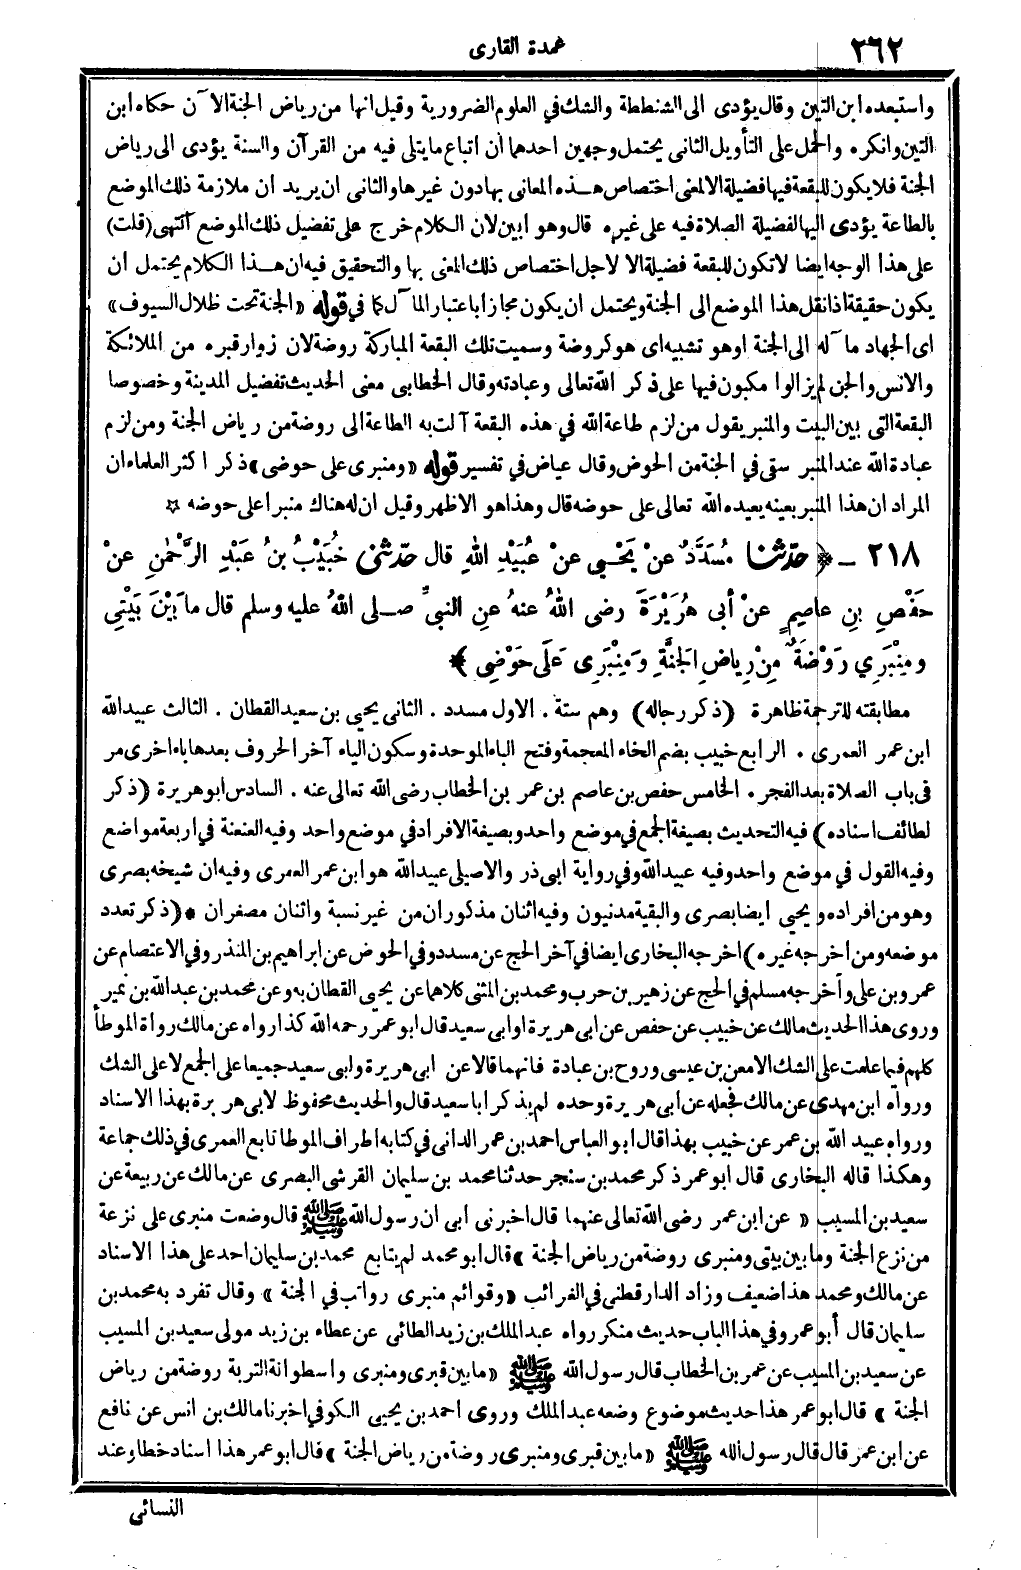 ٢٦٢
عمدة القارى
واستبعده ابن التين وقال يؤدى الى الشنططة والشك في العلوم الضرورية وقيل انها من رياض الجنة الآن حكاه ابن
التين وانكره والحمل على التأويل الثانى يحتمل وجهين احدهما ان اتباع مايتلى فيه من القرآن والسنة يؤدى الى رياض
الجنة فلايكون للبقعة فيها فضيلة الا لمعنى اختصاص هذه المعانى بها دون غيرها والثانى ان يريد ان ملازمة ذلك الموضع
بالطاعة يؤدى اليها لفضيلة الصلاة فيه على غيره قال وهو ابين لان الكلام خرج على تفضيل ذلك الموضع انتهى (قلت)
على هذا الوجه ايضا لاتكون للبقعة فضيلة الا لاجل اختصاص ذلك المعنى بها والتحقيق فيه ان هذا الكلام يحتمل ان
يكون حقيقة اذا نقل هذا الموضع الى الجنة ويحتمل ان يكون مجازا باعتبار المآل كما في قوله «الجنة تحت ظلال السيوف»
اى الجهاد مآله الى الجنة اوهو تشبيه اى هو كروضة وسميت تلك البقعة المباركة روضة لان زوار قبره من الملائكة
والانس والجن لم يزالوا مكبون فيها على ذكر الله تعالى وعبادته وقال الخطابى معنى الحديث تفضيل المدينة وخصوصا
البقعة التى بين البيت والمنبر يقول من لزم طاعة الله في هذه البقعة آلت به الطاعة الى روضة من رياض الجنة ومن لزم
عبادة الله عند المنبر سقى في الجنة من الحوض وقال عياض في تفسير قوله «ومنبرى على حوضى» ذكر اكثر العلماء ان
المراد ان هذا المنبر بعينه يعيده الله تعالى على حوضه قال وهذا هو الاظهر وقيل ان له هناك منبرا على حوضه ☆
٢١٨ - ﴿ حدّثنا مُسَدَّدٌ عنْ يَحْيى عنْ عُبَيْدِ اللهِ قال حدّثنى خُبَيْبُ بنُ عَبْدِ الرَّحْمٰنِ عنْ
حَفْصِ بنِ عاصِمٍ عنْ أبى هُرَيْرَةَ رضى اللهُ عنهُ عنِ النبىِّ صلى اللهُ عليه وسلم قال ما بَيْنَ بَيْتِي
ومِنْبَرِي رَوْضَةٌ مِنْ رِياضِ الجَنَّةِ وَمِنْبَرِى عَلَى حَوْضِى ﴾
مطابقته للترجمة ظاهرة (ذكر رجاله) وهم ستة . الاول مسدد . الثانى يحيى بن سعيد القطان . الثالث عبيد الله
ابن عمر العمرى . الرابع خبيب بضم الخاء المعجمة وفتح الباء الموحدة وسكون الياء آخر الحروف بعدها باء اخرى مر
فى باب الصلاة بعد الفجر . الخامس حفص بن عاصم بن عمر بن الخطاب رضى الله تعالى عنه . السادس ابو هريرة (ذكر
لطائف اسناده) فيه التحديث بصيغة الجمع في موضع واحد وبصيغة الافراد في موضع واحد وفيه العنعنة في اربعة مواضع
وفيه القول في موضع واحد وفيه عبيد الله وفي رواية ابى ذر والاصيلى عبيد الله هو ابن عمر العمرى وفيه ان شيخه بصرى
وهو من افراده ويحيى ايضا بصرى والبقية مدنيون وفيه اثنان مذكوران من غير نسبة واثنان مصغران * (ذكر تعدد
موضعه ومن اخرجه غيره) اخرجه البخارى ايضا في آخر الحج عن مسدد وفي الحوض عن ابراهيم بن المنذر وفي الاعتصام عن
عمرو بن على وأخرجه مسلم في الحج عن زهير بن حرب ومحمد بن المثنى كلاهما عن يحيى القطان به وعن محمد بن عبد الله بن نمير
وروى هذا الحديث مالك عن خبيب عن حفص عن ابى هريرة او ابى سعيد قال ابو عمر رحمه الله كذا رواه عن مالك رواة الموطأ
كلهم فيما علمت على الشك الا معن بن عيسى وروح بن عبادة فانهما قالا عن ابى هريرة وابى سعيد جميعا على الجمع لا على الشك
ورواه ابن مهدى عن مالك فجعله عن ابى هريرة وحده لم يذكر ابا سعيد قال والحديث محفوظ لابى هريرة بهذا الاسناد
ورواه عبيد الله بن عمر عن خبيب بهذا قال ابو العباس احمد بن عمر الدانى في كتابه اطراف الموطا تابع العمرى في ذلك جماعة
وهكذا قاله البخارى قال ابو عمر ذكر محمد بن سنجر حدثنا محمد بن سليمان القرشى البصرى عن مالك عن ربيعة عن
سعيد بن المسيب « عن ابن عمر رضى الله تعالى عنهما قال اخبرنى ابى ان رسول الله ﷺ قال وضعت منبرى على نزعة
من نزع الجنة ومابين بيتى ومنبرى روضة من رياض الجنة » قال ابو محمد لم يتابع محمد بن سليمان احد على هذا الاسناد
عن مالك ومحمد هذا ضعيف وزاد الدارقطنى في الغرائب «وقوائم منبرى رواتب في الجنة » وقال تفرد به محمد بن
سليمان قال أبو عمر وفي هذا الباب حديث منكر رواه عبد الملك بن زيد الطائى عن عطاء بن زيد مولى سعيد بن المسيب
عن سعيد بن المسيب عن عمر بن الخطاب قال رسول الله ﷺ «مابين قبرى ومنبرى واسطوانة التربة روضة من رياض
الجنة » قال ابو عمر هذا حديث موضوع وضعه عبد الملك وروى احمد بن يحيى الكوفى اخبرنا مالك بن انس عن نافع
عن ابن عمر قال قال رسول الله ﷺ «مابين قبرى ومنبرى روضة من رياض الجنة » قال ابو عمر هذا اسناد خطا وعند
النسائى